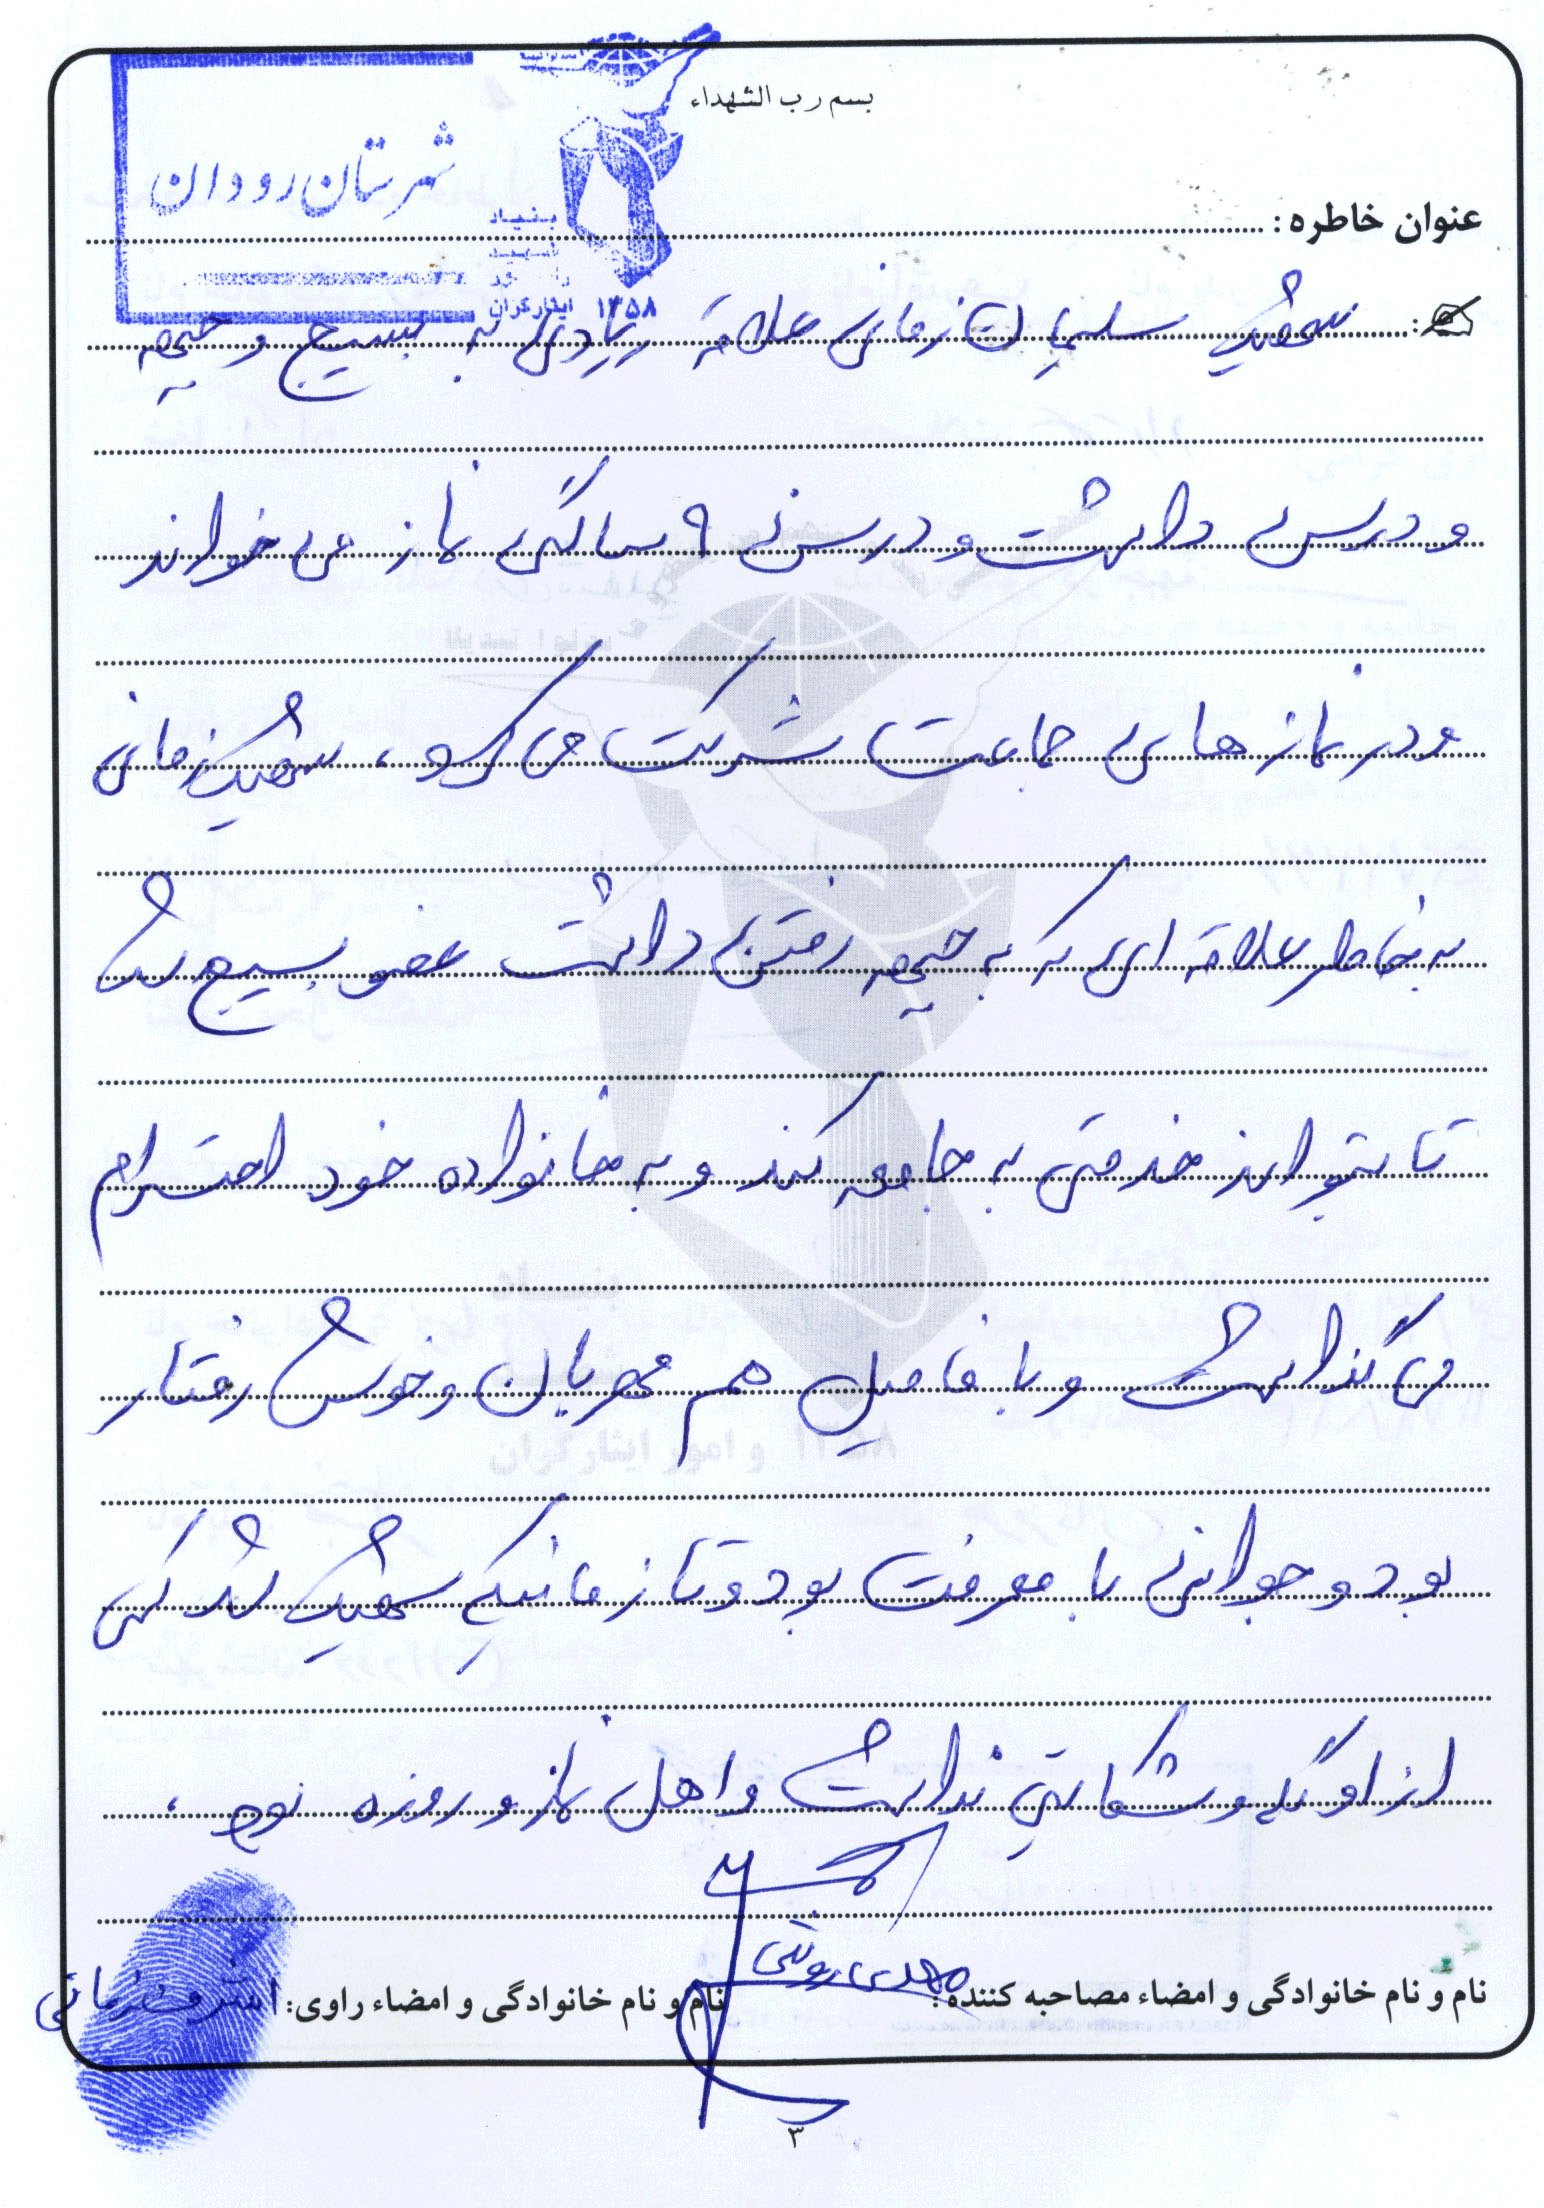 بسم رب الشهداء
شهرستان رودان
بنیاد
شهید
ایثارگران ۱۳۵۸
عنوان خاطره:
شهید سلیمان زمانی علاقه زیادی به بسیج و جبهه
و درس داشت و در سن ۹ سالگی نماز می خواند
و در نماز های جماعت شرکت می کرد، شهید زمانی
به خاطر علاقه ای که به جبهه رفتن داشت عضو بسیج شد
تا بتواند خدمتی به جامعه کند و به خانواده خود احترام
می گذاشت و با فامیل هم مهربان و خوش رفتار
بود و جوانی با معرفت بود و تا زمانیکه شهید شد کسی
از او گله و شکایتی نداشت و اهل نماز و روزه بود،
نام و نام خانوادگی و امضاء مصاحبه کننده: مهدی
نام و نام خانوادگی و امضاء راوی: اشرف زمانی
۳